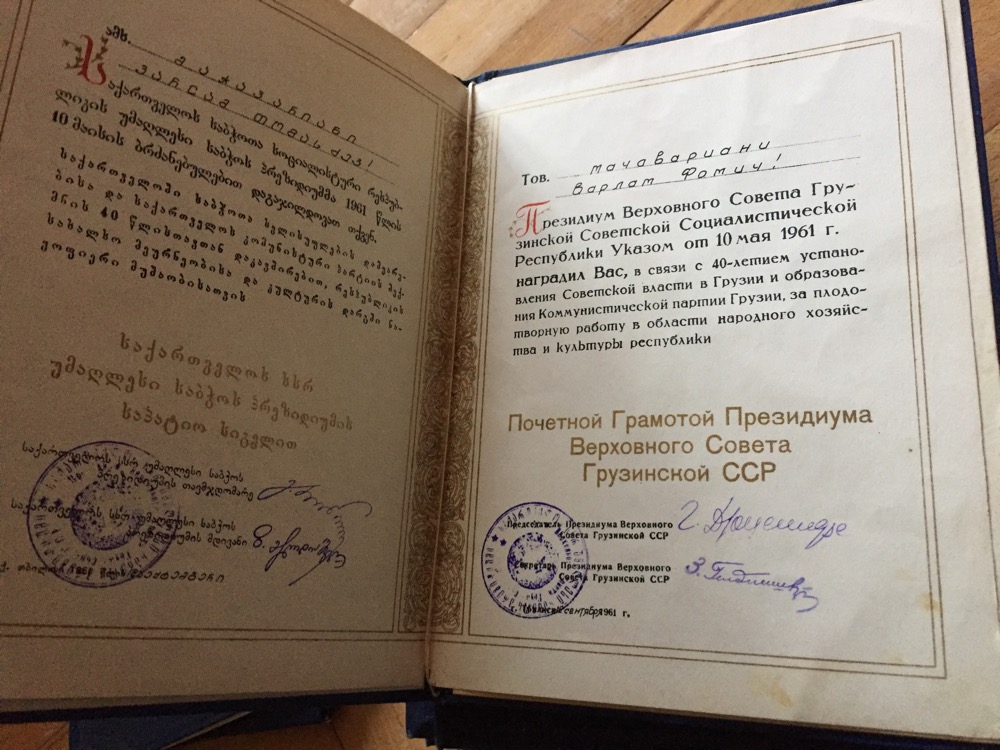 ამხ. მაჭავარიანი
ვარლამ თომას ძევ!
საქართველოს საბჭოთა სოციალისტური რესპუბ-
ლიკის უმაღლესი საბჭოს პრეზიდიუმმა 1961 წლის
10 მაისის ბრძანებულებით დაგაჯილდოვათ თქვენ
საქართველოში საბჭოთა ხელისუფლების დამყარე-
ბისა და საქართველოს კომუნისტური პარტიის შექ-
მნის 40 წლისთავთან დაკავშირებით, რესპუბლიკის
სახალხო მეურნეობისა და კულტურის დარგში ნა-
ყოფიერი მუშაობისათვის
საქართველოს სსრ
უმაღლესი საბჭოს პრეზიდიუმის
საპატიო სიგელით
საქართველოს სსრ უმაღლესი საბჭოს
პრეზიდიუმის თავმჯდომარე
საქართველოს სსრ უმაღლესი საბჭოს
პრეზიდიუმის მდივანი
ქ. თბილისი
Тов. Мачавариани
Варлам Фомич!
Президиум Верховного Совета Гру-
зинской Советской Социалистической
Республики Указом от 10 мая 1961 г.
наградил Вас, в связи с 40-летием устано-
вления Советской власти в Грузии и образова-
ния Коммунистической партии Грузии, за плодо-
творную работу в области народного хозяйс-
тва и культуры республики
Почетной Грамотой Президиума
Верховного Совета
Грузинской ССР
Председатель Президиума Верховного
Совета Грузинской ССР
Г. Дзоценидзе
Секретарь Президиума Верховного
Совета Грузинской ССР
г. Тбилиси сентября 1961 г.